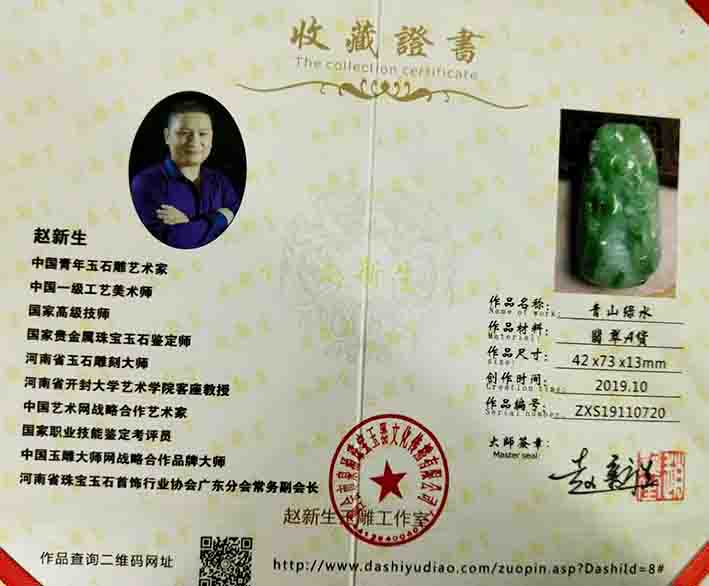 收藏證書
The collection certificate
赵新生
中国青年玉石雕艺术家
中国一级工艺美术师
国家高级技师
国家贵金属珠宝玉石鉴定师
河南省玉石雕刻大师
河南省开封大学艺术学院客座教授
中国艺术网战略合作艺术家
国家职业技能鉴定考评员
中国玉雕大师网战略合作品牌大师
河南省珠宝玉石首饰行业协会广东分会常务副会长
赵新生玉雕工作室
作品查询二维码网址
http://www.dashiyudiao.com/zuopin.asp?DashiId=8#
作品名称: 青山绿水
Name of work:
作品材料: 翡翠A货
Material:
作品尺寸: 42x73x13mm
size:
创作时间: 2019.10
Creation time:
作品编号: ZXS19110720
Serial number:
大师签章:
Master seal:
赵新生